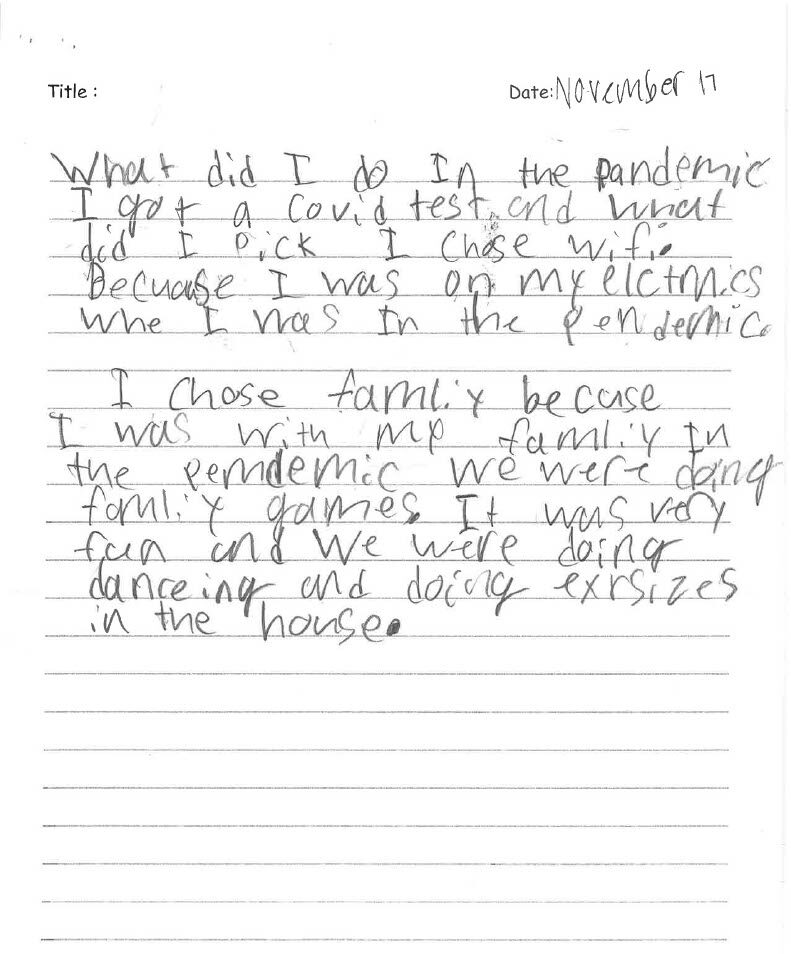 Title :
Date: November 17
What did I do In the pandemic
I got a covid test and what
did I pick I chose wifi.
Becuase I was on my elctrnics
whe I was In the pendemic.
I chose famliy becuse
I was with my famliy In
the pemdemic we were doing
famliy games. It was very
fun and we were doing
danceing and doing exrsizes
in the house.